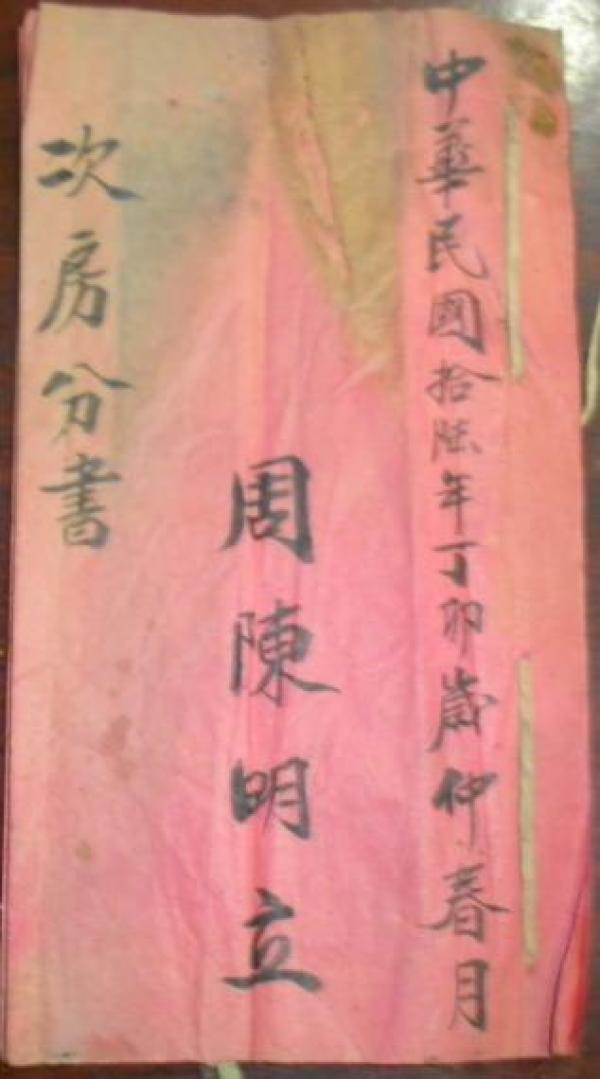 中華民國拾陸年丁卯歲仲春月
周陳明立
次房分書